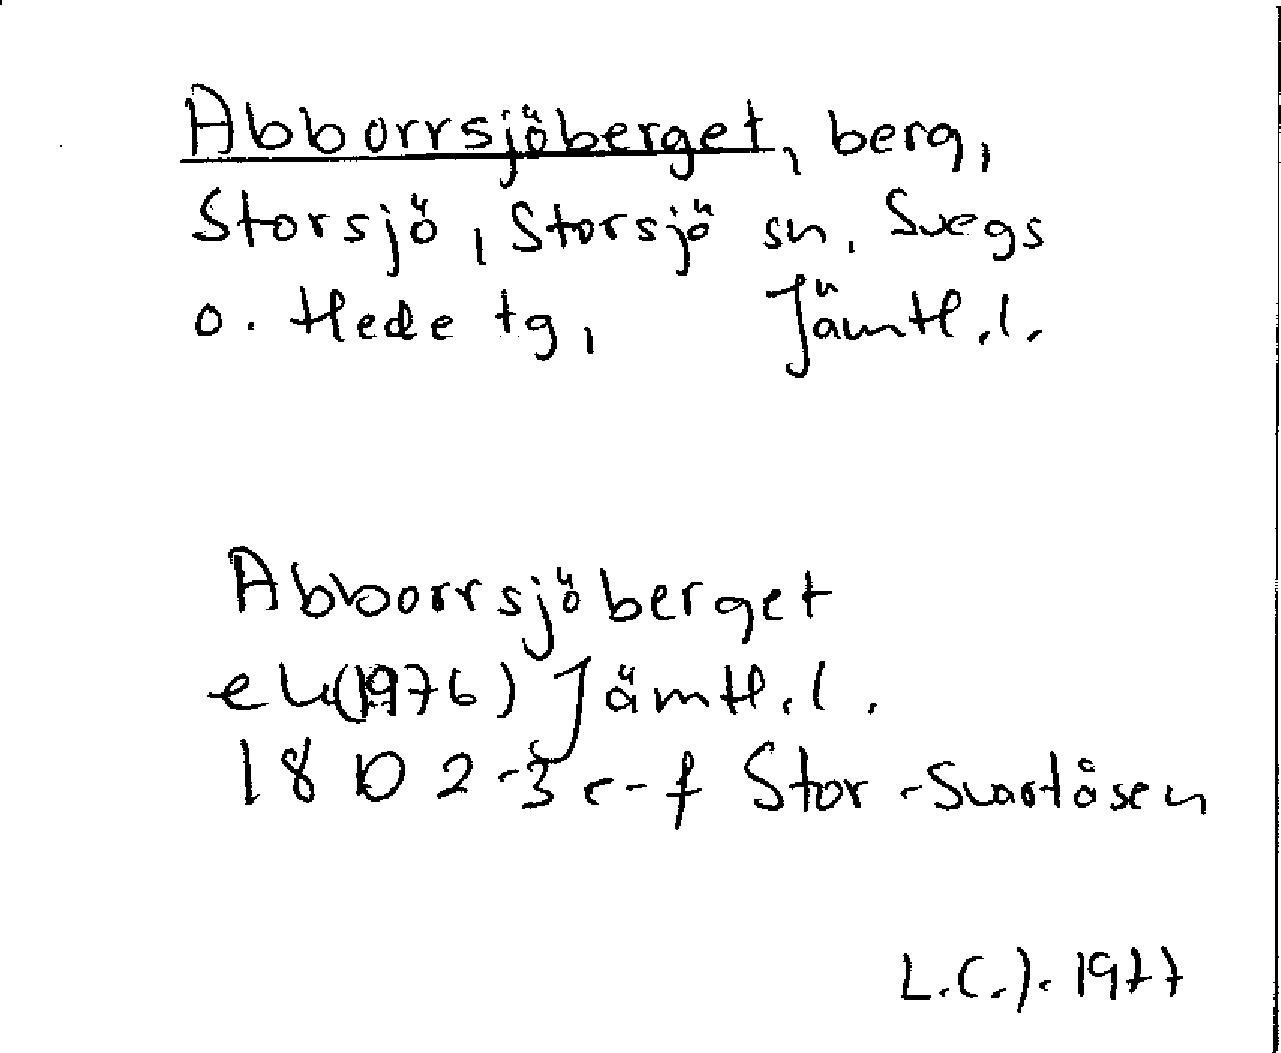 Abborrsjöberget, berg,
Storsjö, Storsjö sn, Svegs
o. Hede tg, Jämtl.l.
Abborrsjöberget
ek(1976) Jämtl.l.
18 D 2-3 e-f Stor-Svartåsen
L.C.J. 1977